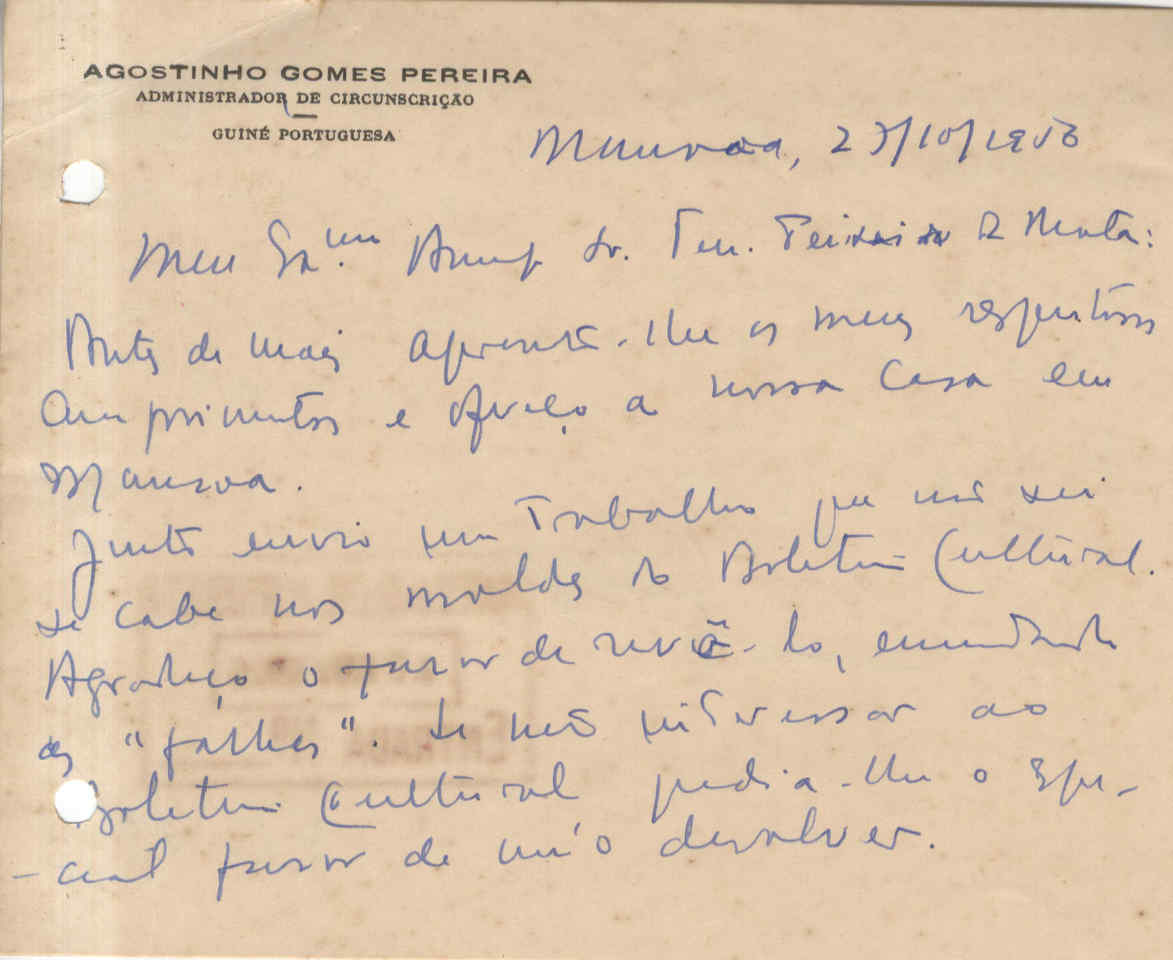 AGOSTINHO GOMES PEREIRA
ADMINISTRADOR DE CIRCUNSCRIÇÃO
GUINÉ PORTUGUESA
Mansoa, 23/10/1956
Meu Exmo. Amigo Sr. Ten. Teixeira da Mota:
Antes de mais apresento-lhe os meus respeitosos
cumprimentos e ofereço a nossa casa em
Mansoa.
Junto envio um trabalho que não sei
se cabe nos moldes do Boletim Cultural.
Agradeço o favor de revê-lo, emendando
as "falhas". Se não interessar ao
Boletim Cultural pedia-lhe o espe-
-cial favor de mo devolver.